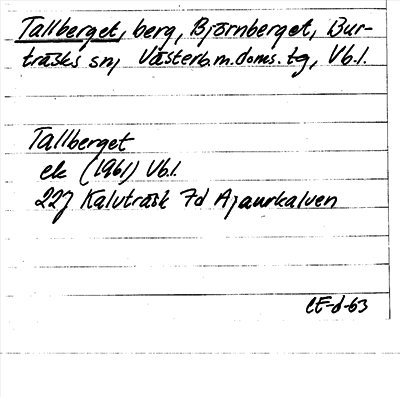 Tallberget, berg, Björnberget, Bur-
träsks sn, Västerb.m.doms.tg, Vb.l.
Tallberget
ek (1961) Vb.l.
22J Kalvträsk 7d Ajaurkalven
CE-d-63